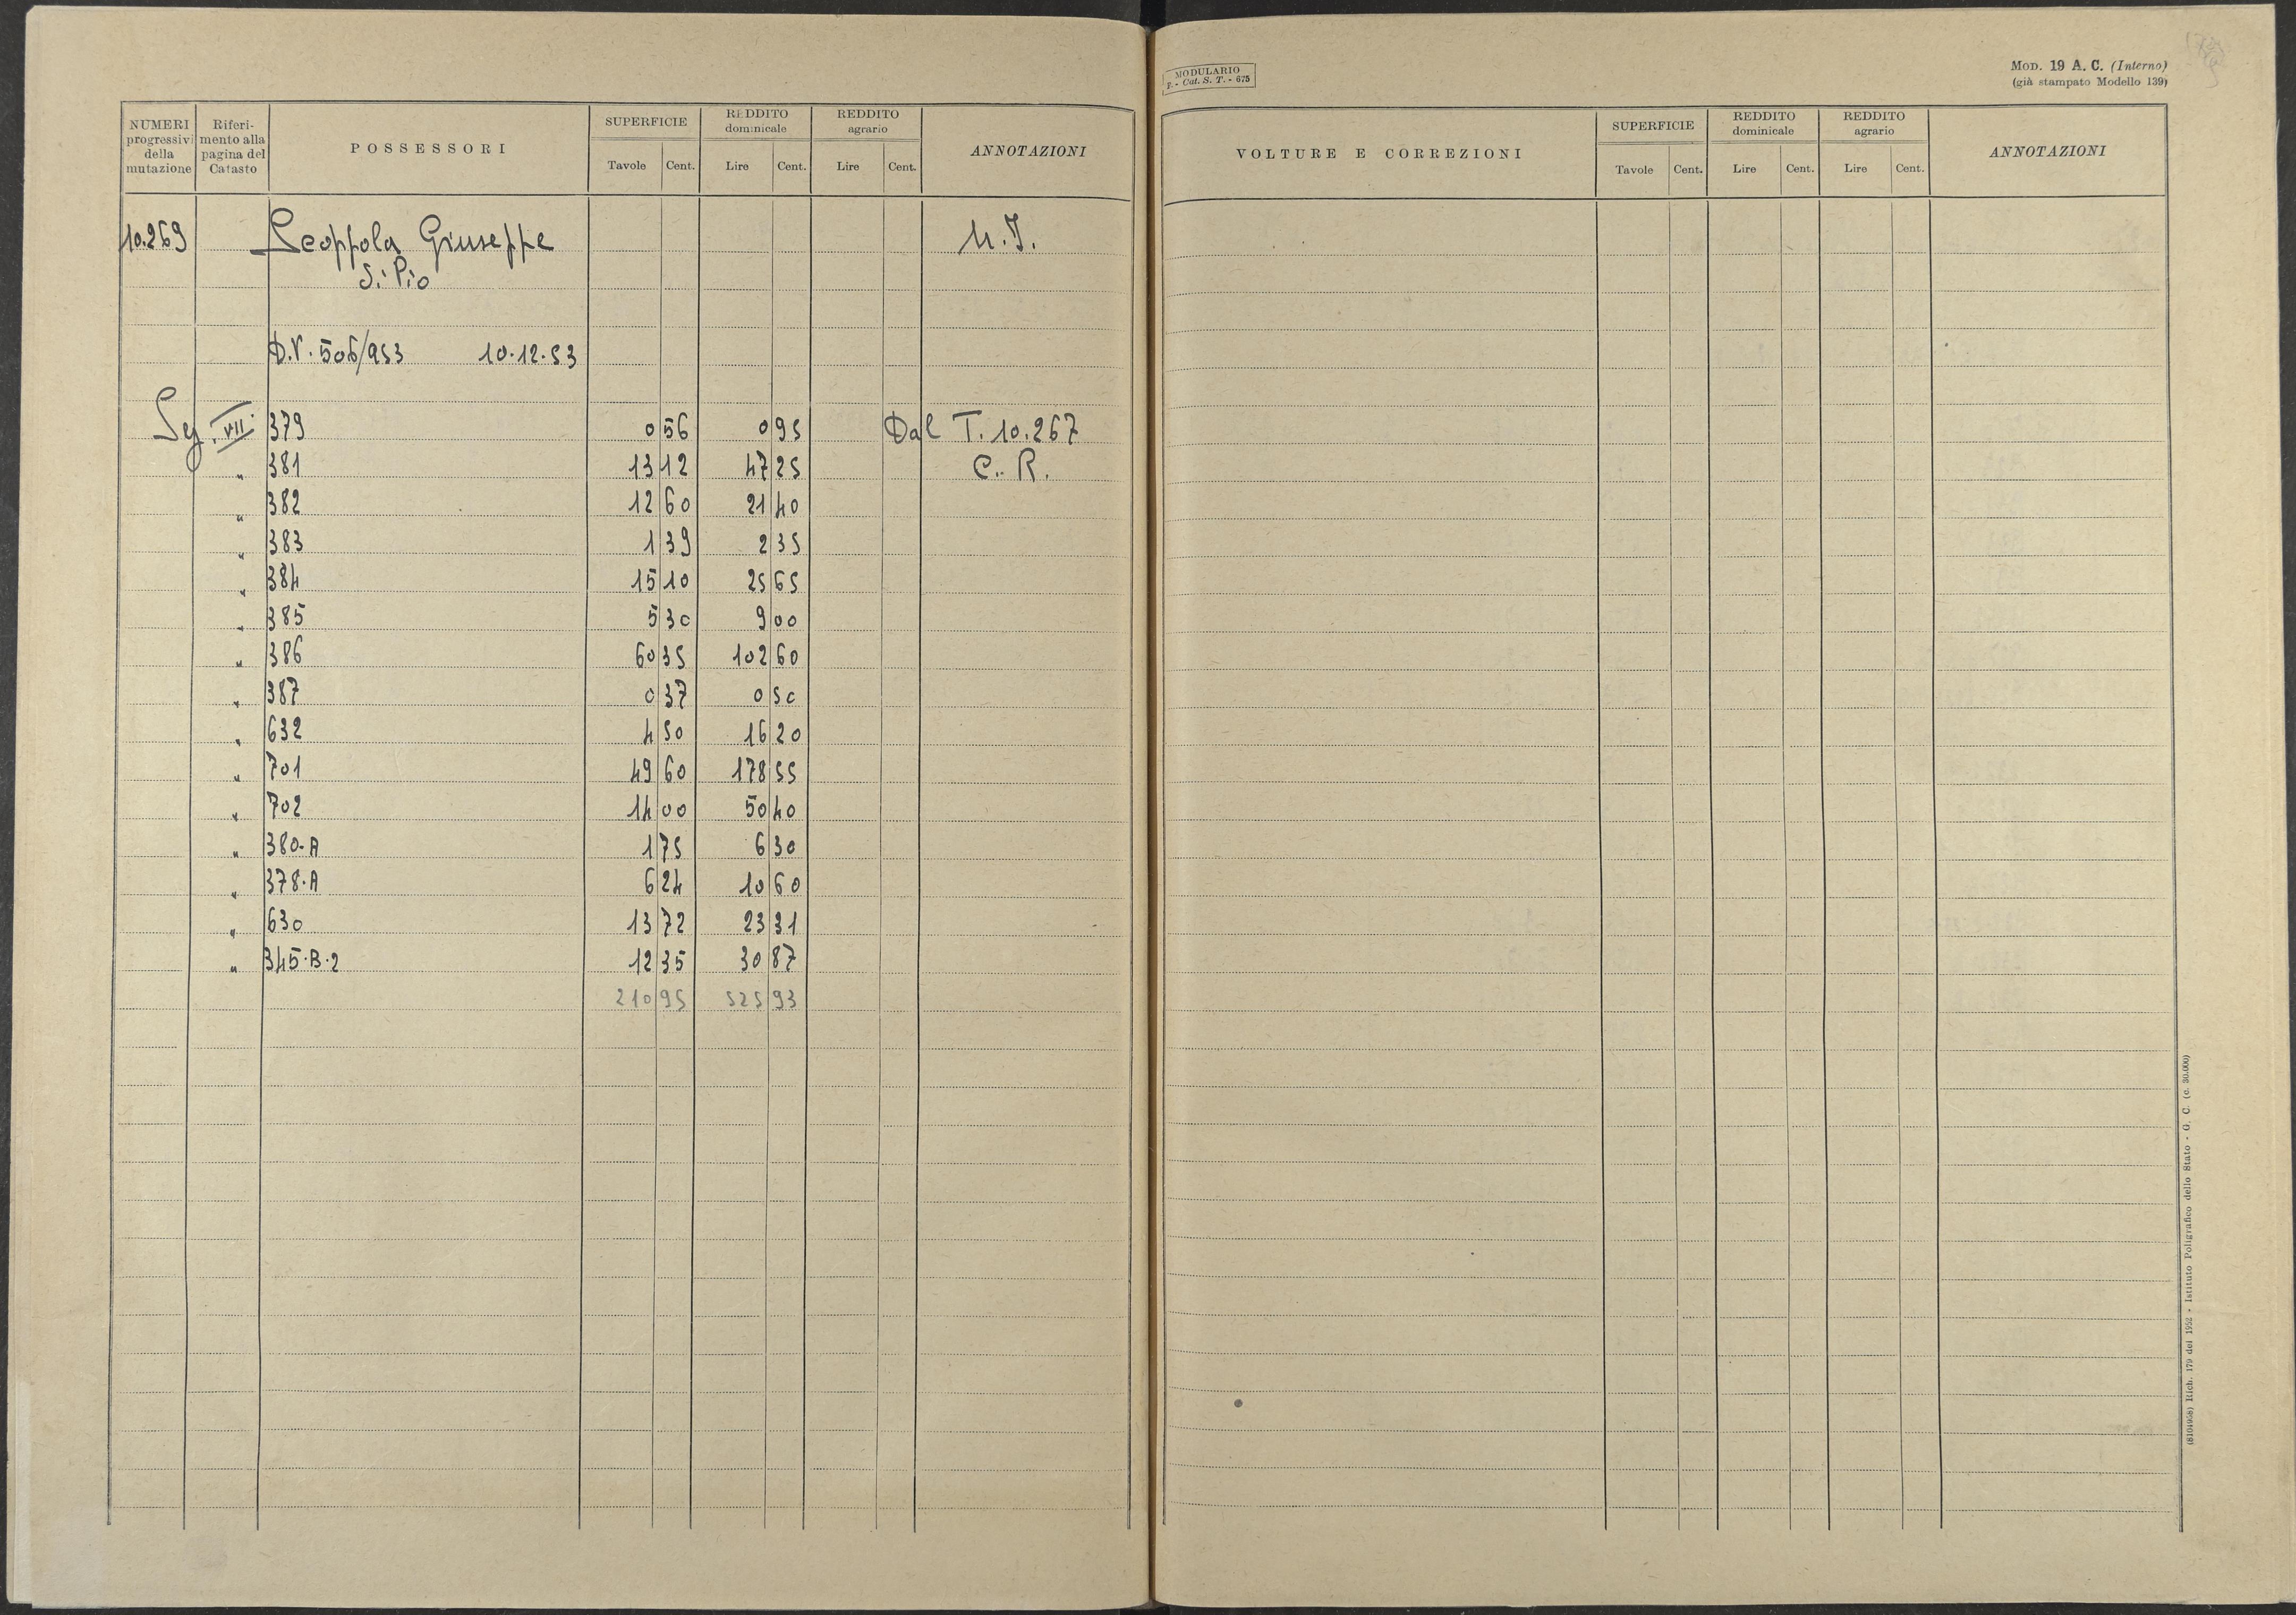 NUMERI progressivi della mutazione
Riferimento alla pagina del Catasto
POSSESSORI
SUPERFICIE
Tavole Cent.
REDDITO dominicale
Lire Cent.
REDDITO agrario
Lire Cent.
ANNOTAZIONI
10.269 Scoppola Giuseppe U.I.
di Pio
D.V. 506/953 10.12.53
Sez. VII 379 0 56 0 95 Dal T. 10.267
" 381 13 12 47 25 C.R.
" 382 12 60 21 40
" 383 1 39 2 35
" 384 15 10 25 65
" 385 5 30 9 00
" 386 60 35 102 60
" 387 0 37 0 50
" 632 4 50 16 20
" 701 49 60 178 55
" 702 14 00 50 40
" 380.A 1 75 6 30
" 378.A 6 24 10 60
" 630 13 72 23 31
" 345.B.2 12 35 30 87
210 95 525 93
MODULARIO
F. - Cat. S. T. - 675
MOD. 19 A. C. (Interno)
(già stampato Modello 139)
VOLTURE E CORREZIONI
SUPERFICIE
Tavole Cent.
REDDITO dominicale
Lire Cent.
REDDITO agrario
Lire Cent.
ANNOTAZIONI
(8104958) Rich. 179 del 1952 - Istituto Poligrafico dello Stato - G. C. (c. 30.000)